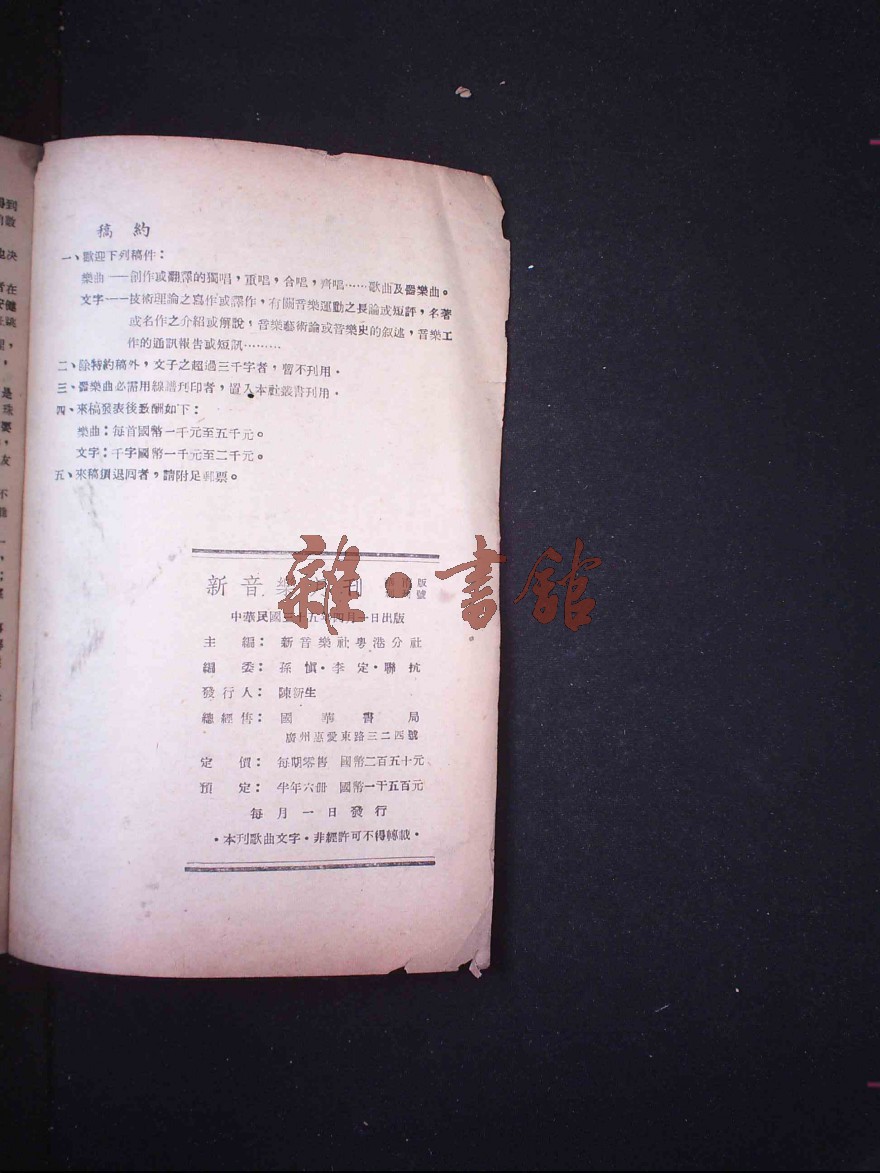 稿約
一、歡迎下列稿件：
樂曲——創作或翻譯的獨唱，重唱，合唱，齊唱……歌曲及器樂曲。
文字——技術理論之寫作或譯作，有關音樂運動之長論或短評，名著
或名作之介紹或解說，音樂藝術論或音樂史的叙述，音樂工
作的通訊報告或短訊………
二、除特約稿外，文子之超過三千字者，暫不刊用。
三、器樂曲必需用線譜刋印者，置入本社叢書刋用。
四、來稿發表後致酬如下：
樂曲：每首國幣一千元至五千元。
文字：千字國幣一千元至二千元。
五、來稿須退囘者，請附足郵票。
雜·書館
新音樂 刊 版
號
中華民國三十五年四月一日出版
主編：新音樂社粵港分社
編委：孫愼·李定·聯抗
發行人：陳新生
總經售：國華書局
廣州惠愛東路三二四號
定價：每期零售 國幣二百五十元
預定：半年六冊 國幣一千五百元
每月一日發行
·本刋歌曲文字·非經許可不得轉載·